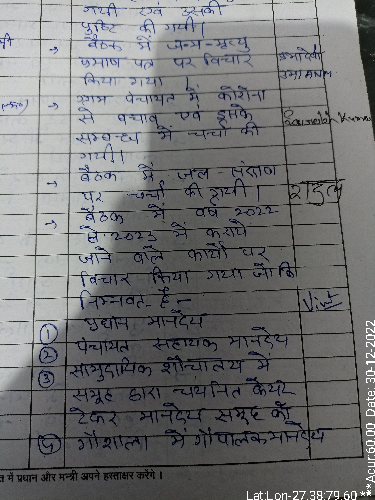 गयी एवं उसकी
पुष्टि की गयी।
→ बैठक में जन्म-मृत्यु
प्रमाण पत्र पर विचार
किया गया।
→ ग्राम पंचायत में कोरोना
से बचाव एवं इसके
सम्बन्ध में चर्चा की
गयी।
→ बैठक में जल-संरक्षण
पर चर्चा की गयी।
→ बैठक में वर्ष 2022
से 2023 में कराये
जाने वाले कार्यो पर
विचार किया गया जो कि
निम्नवत है -
① प्रधान मानदेय
② पंचायत सहायक मानदेय
③ सामुदायिक शौचालय में
समूह द्वारा चयनित केयर
टेकर मानदेय समूह को
④ गौशाला में गौपालक मानदेय
राहुल
त में प्रधान और मन्त्री अपने हस्ताक्षर करेंगे।
Lat:Lon-27.38:79.60***Acur:60.00 Date. 30-12-2022